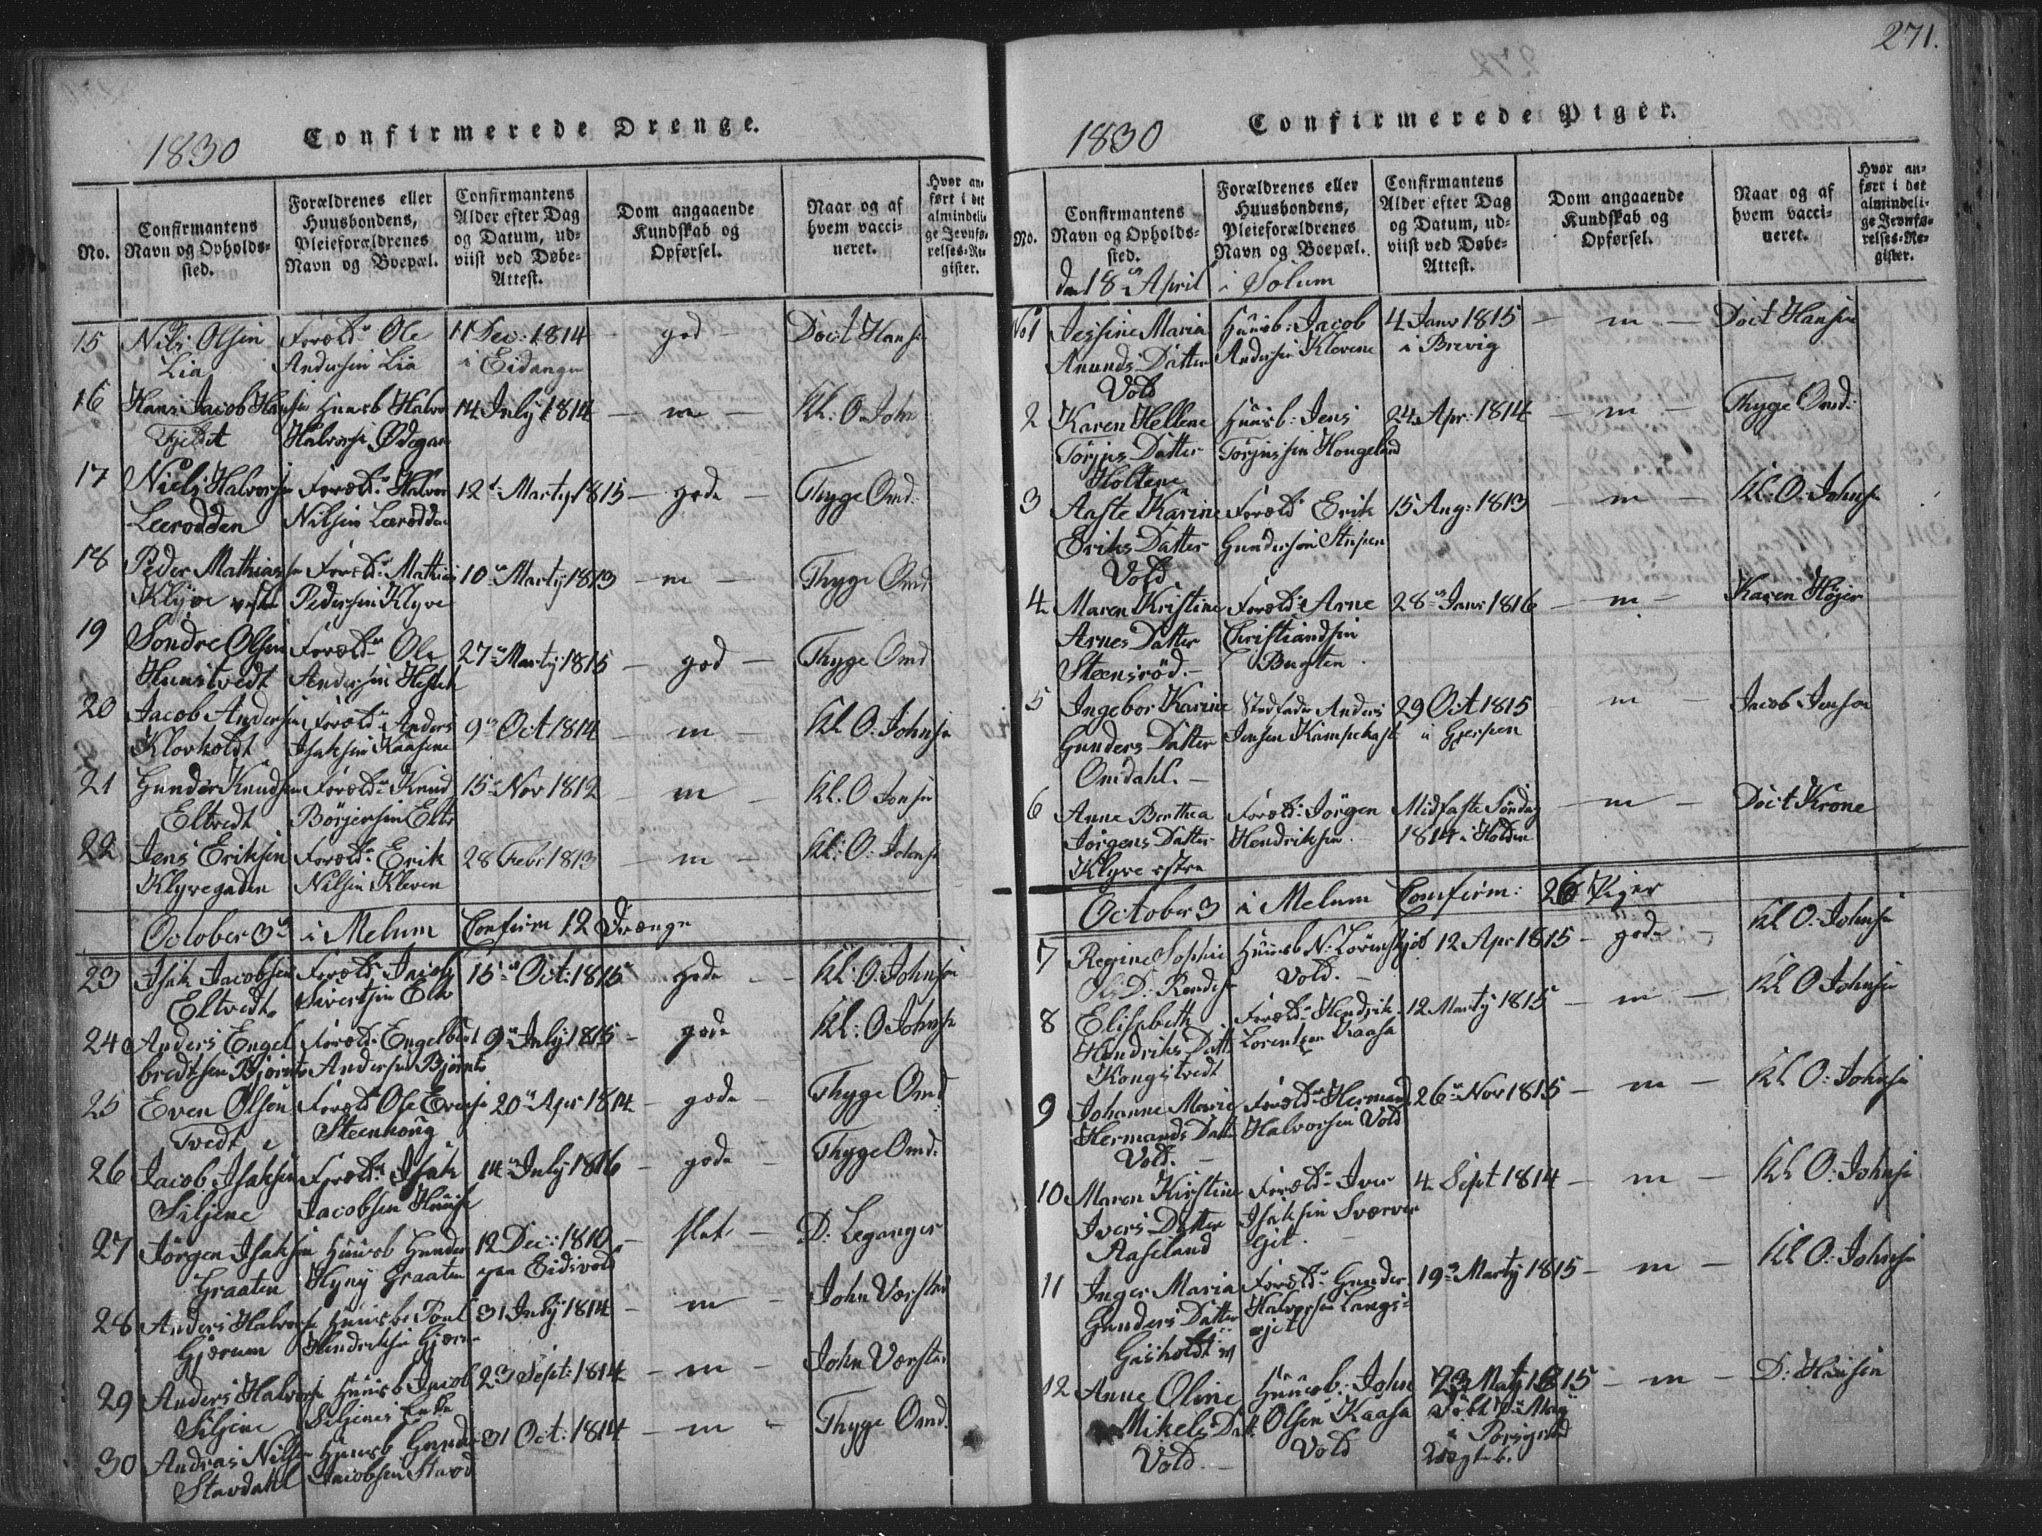 1830 Confirmerede Drenge.
No.
Confirmantens Navn og Opholdssted.
Forældrenes eller Huusbondens, Pleieforældrenes Navn og Boepæl.
Confirmantens Alder efter Dag og Datum, udviist ved Døbe-Attest.
Dom angaaende Kundskab og Opførsel.
Naar og af hvem vaccineret.
Hvor anført i det almindelige Jevnførelses-Register.
15 Nils Olsen Foræld: Ole 11 Dec: 1814 – god – Doct Hans
Lia Andersen Lia i Eidanger
16 Hans Jacob Hansen Huusb Halvor 14 July 1814 – m – Kl: O: John
Halvors Ødegar
17 Niels Halvorsen Foræld: Halvor 12 Marty 1815 – gode – Thyge Omd:
Leerodden Nilsen Leerodden
18 Peder Mathias Foræld: Mathias 10 Marty 1813 – m – Thyge Omd:
Klyve Pedersen Klyve
19 Søndre Olsen Foræld: Ole 27 Marty 1815 – god – Thyge Omd
Hunstvedt Andersen
20 Jacob Andersen Foræld: Anders 9 Oct 1814 – m – Kl O: Johnsen
Klovholdt Isaksen Kaasene
21 Gunder Knudsen Foræld: Knud 15 Nov 1812 – m – Kl: O Jonsen
Eltvedt Børjersen Eltv
22 Jens Eriksen Foræld: Erik 28 Febr 1813 – m – Kl: O: Johns
Klyvegaden Nilsen Kleven
October 3 i Melum Confirm 12 Drænge
23 Isak Jacobsen Foræld: Jacob 15 Oct: 1815 – gode – Kl: O: Johnsen
Eltvedt Sivertsen Eltv
24 Anders Engel Foræld: Engelbret 9 July 1815 – gode Kl: O Johns
bredtsen Bjørnts Andersen Bjørnts
25 Even Olsen Foræld Ole Evens 20 Apr 1814 – gode – Thyge Omd
Tvedt Steenhoug
26 Jacob Isaksen Foræld: Isak 14 July 1816 – gode – Thyge Omd:
Siljene Jacobsen
27 Jørgen Isaksen Huusb Gunder 12 Dec: 1810 – slet – D: Leganger
Graaten Graaten paa Eidsvold
28 Anders Halvors Huusb: Poul 31 July 1814 – m – John Vørstad
Gjærum Hendriksen Gjærum
29 Anders Halvors Huusb Jacob 23 Sept: 1814 – m – John Vørstad
Siljene Siljenes Enke
30 Andrias Nilsen Huusb Gunder 31 Oct: 1814 – m – Thyge Omd.
Stavdahl Jacobsen Stavd
271.
1830 Confirmerede Piger.
No.
Confirmantens Navn og Opholdssted.
Forældrenes eller Huusbondens, Pleieforældrenes Navn og Boepæl.
Confirmantens Alder efter Dag og Datum, udviist ved Døbe-Attest.
Dom angaaende Kundskab og Opførsel.
Naar og af hvem vaccineret.
Hvor anført i det almindelige Jevnførelses-Register.
den 18 April i Solum
No 1 Jessine Maria Huusb: Jacob 4 Janr 1815 – m – Doct Hansen
Anunds Datter Andersen Klevene i Brevig
Vold
2 Karen Hellene Huusb: Jens 24 Apr: 1814 – m – Thyge Omd:
Torjus Datter Torjussen Hougeland
Holtene
3 Aaste Karine Foræld: Erik 15 Aug: 1813 – m – Kl: O: Johns
Eriks Datter Gundersen
Vold
4 Maren Kristine Foræld: Arne 28 Janr 1816 – m – Karen Højer
Arnes Datter Christiandsen
Steensrød. – Bugten
5 Ingebor Karine Stedfader Anders 29 Oct 1815 m – Jacob Jenson
Gunders Datter Jensen Kampehaste i Gjerpen
Omdahl. –
6 Anne Berthea Foræld: Jørgen Midfaste Søndag – m – Doct Krone
Jørgens Datter Hendriksen 1814 i Holden
Klyve østre
October 3 i Melum Confirm: 26 Piger
7 Regine Sophie Huusb N: 12 Apr 1815 – gode – Kl O: Johnsen
Ols D: Vold. –
8 Elisabeth Foræld: Hendrik 12 Marty 1815 – m – Kl O Johnsen
Hendriks Datt Lorentzen Kaasa
Kongstvedt
9 Johanne Marie Foræld: Hermand 26 Nov 1815 – m – Kl O: Johnsen
Hermands Datter Halvorsen Vold
Vold. –
10 Maren Kirstine Foræld: Iver 4 Sept 1814 – m – Kl O: Johnsen
Ivers Datter Isaksen Sværver
Aaseland
11 Inger Maria Foræld: Gunder 19 Marty 1815 – m – Kl O: Johnsen
Gunders Datter Halvorsen Langs=
Grisholdt ejet
12 Anne Oline Huusb: John 23 Marty 1815 – m – D: Hansen
Mikels Datt. Olsen Kaasa
Vold. – Vold i Porsgrund